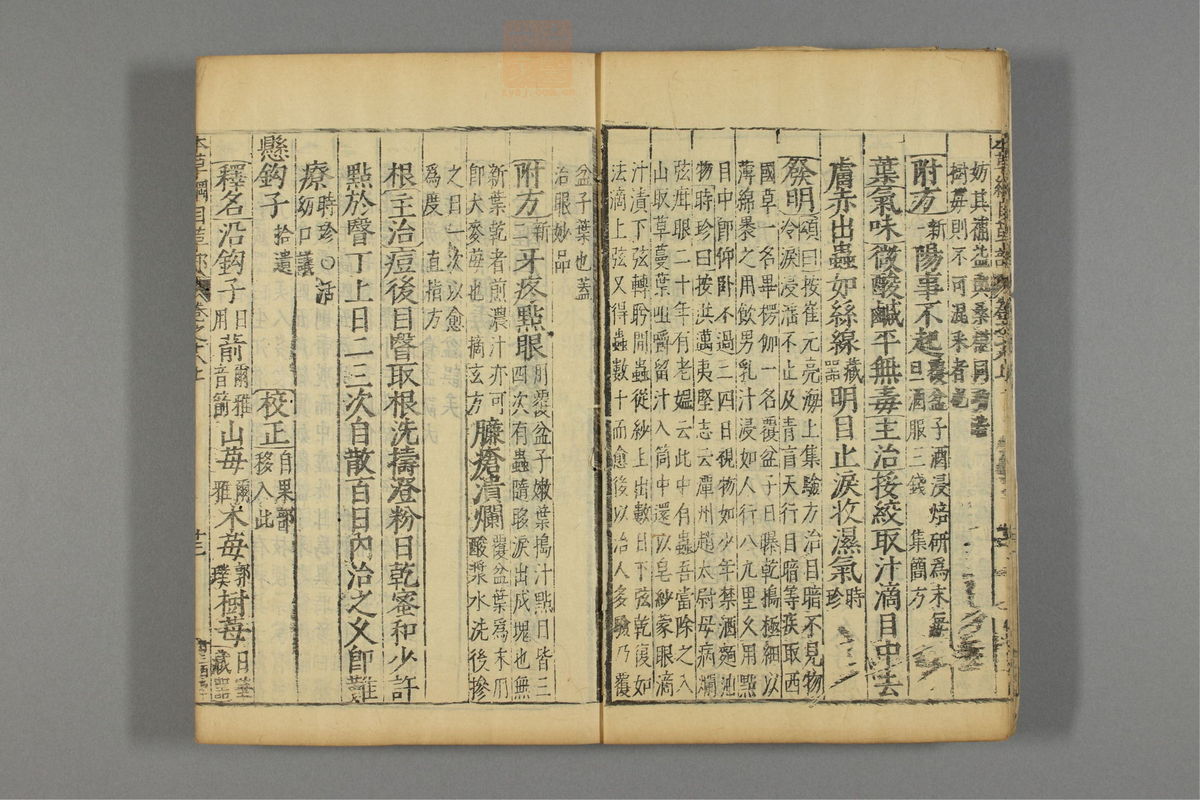 妨其補益與桑椹同功若
樹莓則不可混采者也
附方新一陽事不起覆盆子酒浸焙研為末每
旦酒服三錢　集簡方
葉氣味微酸鹹平無毒主治挼絞取汁滴目中去
膚赤出蟲如絲線藏器明目止淚收濕氣時珍
發明頌曰按崔元亮海上集驗方治目暗不見物
冷淚浸淫不止及青盲天行目暗等疾取西
國草一名畢楞伽一名覆盆子日曝乾搗極細以
薄綿裹之用飲男乳汁浸如人行八九里久用點
目中即仰臥不過三四日視物如少年禁酒麵油
物時珍曰按洪邁夷堅志云潭州趙太尉母病爛
弦疳眼二十年有老媼云此中有蟲吾當除之入
山取草蔓葉咀嚼留汁入筒中還以皂紗蒙眼滴
汁漬下弦轉盻間蟲從紗上出數日下弦乾復如
法滴上弦又得蟲數十而愈後以治人多驗乃覆
盆子葉也蓋
治眼妙品
附方新二牙疼點眼用覆盆子嫩葉搗汁點目皆三
四次有蟲隨眵淚出成塊也無
新葉乾者煎濃汁亦可
即大麥莓也　摘玄方臁瘡潰爛覆盆葉為末用
酸漿水洗後摻
之日一次以愈
為度　直指方
根主治痘後目瞖取根洗擣澄粉日乾蜜和少許
點於瞖丁上日二三次自散百日內治之久即難
療時珍○活
幼口議
懸鈎子拾遺　校正自果部
移入此
釋名沿鈎子日用莭爾雅音箭山莓爾雅木莓郭璞樹莓日華
藏器